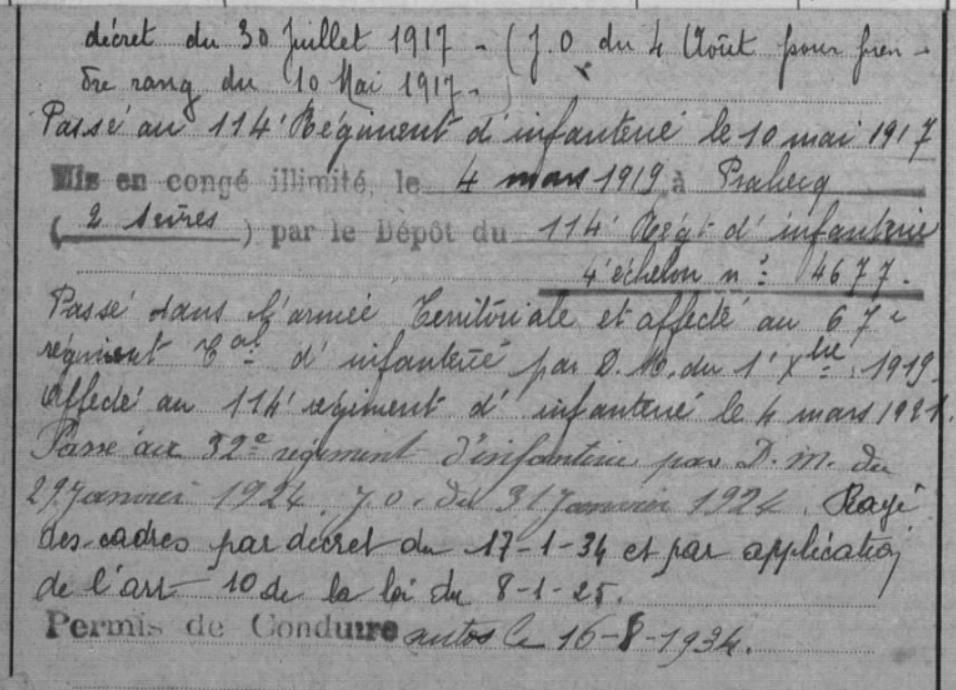 décret du 30 Juillet 1917 - (J.O du 4 Août pour pren-
dre rang du 10 Mai 1917.)
Passé au 114e Régiment d'infanterie le 10 mai 1917
Mis en congé illimité, le 4 mars 1919 à Prahecq
(2 Sèvres) par le Dépôt du 114e Régt d'infanterie
4e échelon no 4677.
Passé dans l'armée Territoriale et affecté au 67e
régiment Tal d'infanterie par D.M. du 1er Xbre 1919.
Affecté au 114e régiment d'infanterie le 4 mars 1921.
Passé au 32e régiment d'infanterie par D.M. du
29 Janvier 1924. J.O. du 31 Janvier 1924. Rayé
des cadres par décret du 17-1-34 et par application
de l'art 10 de la loi du 8-1-25.
Permis de Conduire autos le 16-8-1934.